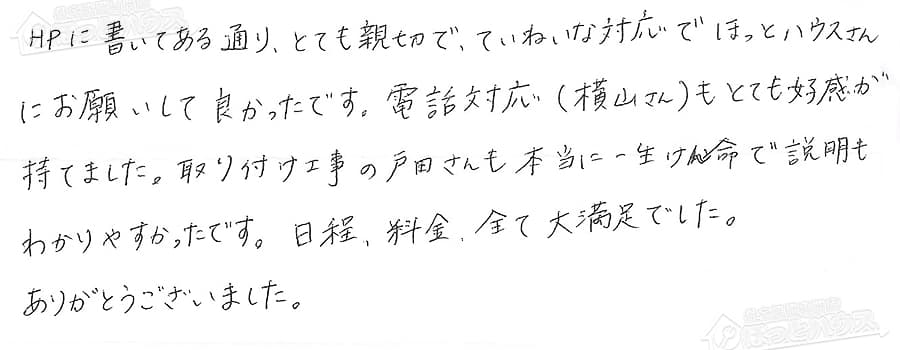 HPに書いてある通り、とても親切で、ていねいな対応でほっとハウスさん
にお願いして良かったです。電話対応(横山さん)もとても好感が
持てました。取り付け工事の戸田さんも本当に一生けん命で説明も
わかりやすかったです。日程、料金、全て大満足でした。
ありがとうございました。
ほっとハウス